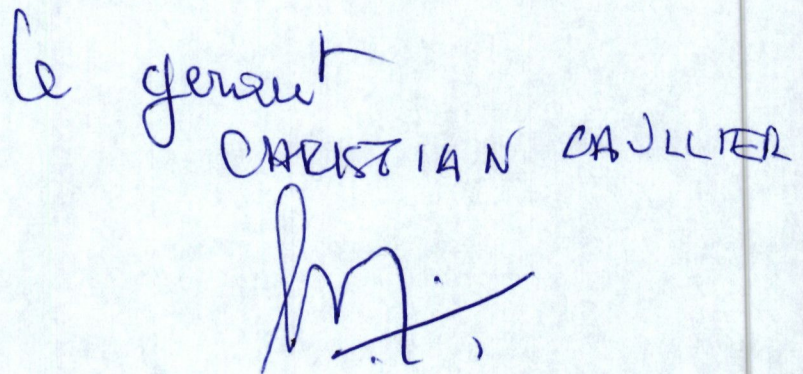 le gerant
CHRISTIAN CAULLIER